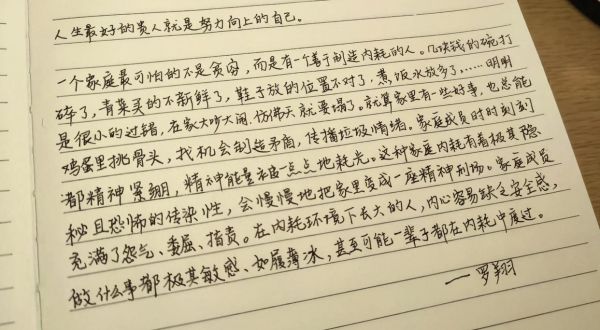 人生最好的贵人就是努力向上的自己。
一个家庭最可怕的不是贫容，而是有一个善于制造内耗的人。几块钱的碗打
碎了，青菜买的不新鲜了，鞋子放的位置不对了，煮饭水放多了，……明明
是很小的过错，在家大吵大闹，仿佛天就要塌了。就算家里有一些好事，也总能
鸡蛋里挑骨头，找机会制造矛盾，传播垃圾情绪。家庭成员时时刻刻
都精神紧绷，精神能量被一点点地耗光。这种家庭内耗有着极其隐
秘且恐怖的传染性，会慢慢地把家里变成一座精神刑场。家庭成员
充满了怨气、委屈、指责。在内耗环境下长大的人，内心容易缺乏安全感，
做什么事都极其敏感、如履薄冰，甚至可能一辈子都在内耗中度过。
——罗翔